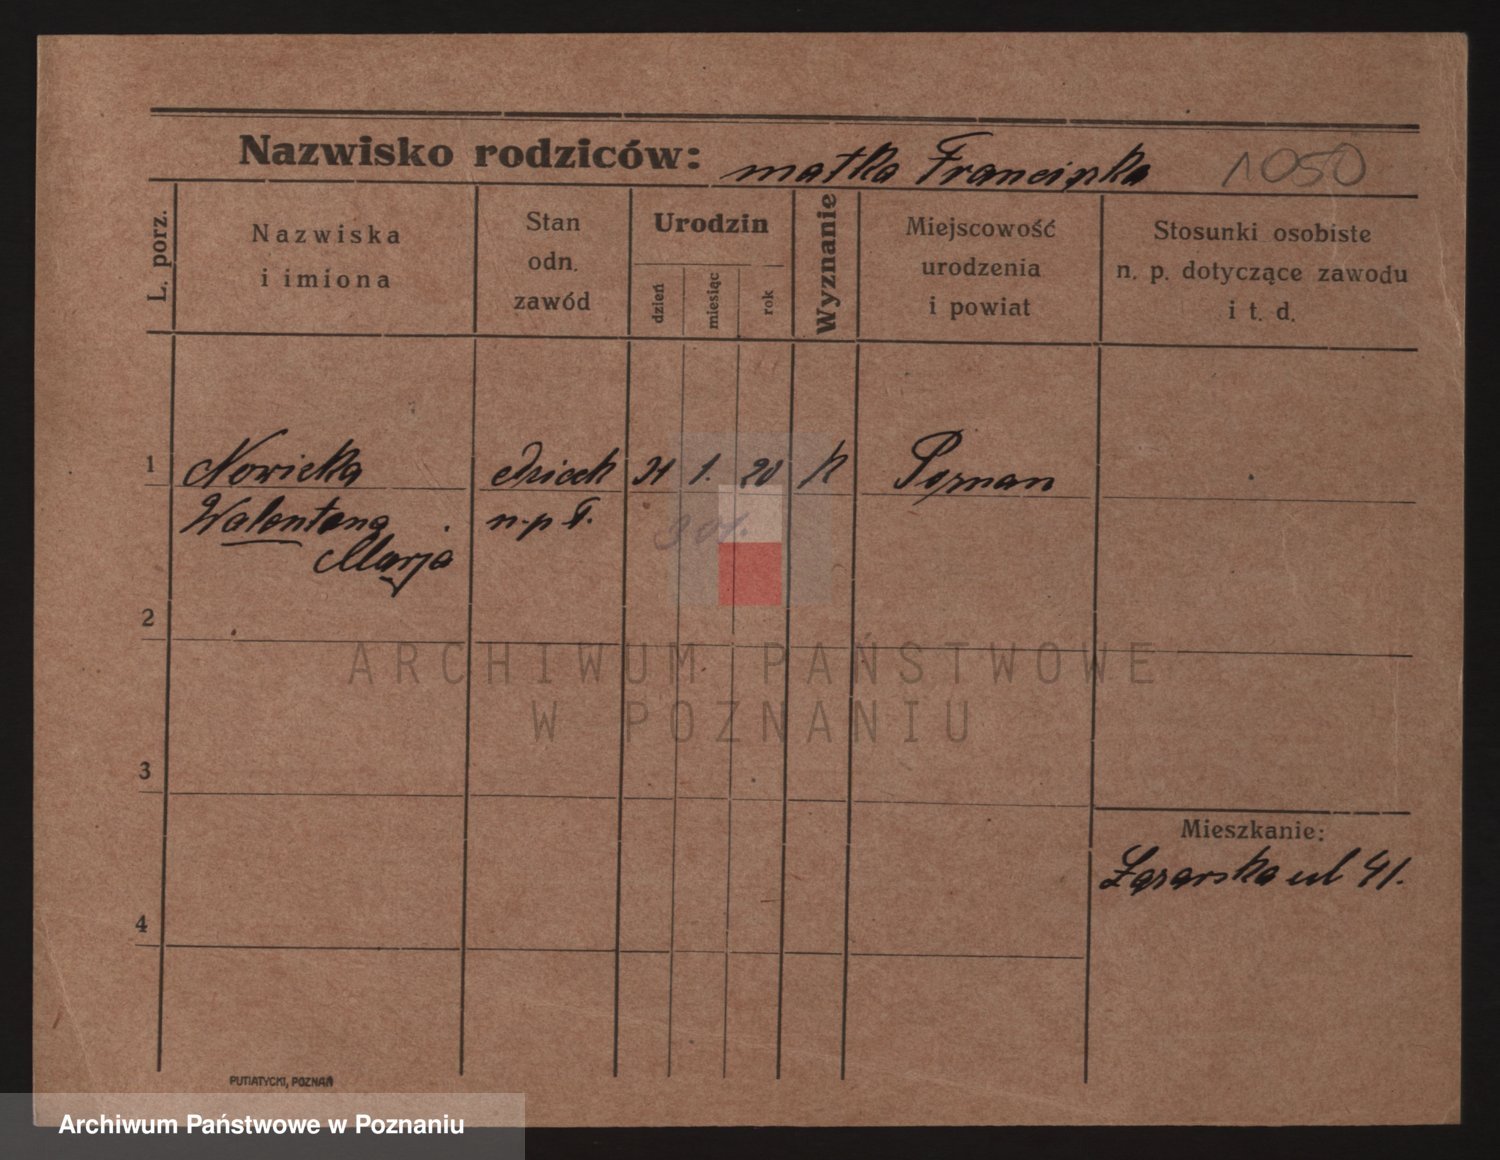 Nazwisko rodziców: matka Franciszka 1050
L. porz.
Nazwiska
i imiona
Stan
odn.
zawód
Urodzin
dzień
miesiąc
rok
Wyznanie
Miejscowość
urodzenia
i powiat
Stosunki osobiste
n. p. dotyczące zawodu
i t. d.
1 Nowicka dzieck 31 1. 20 k Poznan
Walentana n.p.
Marja
2
ARCHIWUM PAŃSTWOWE
W POZNANIU
3
Mieszkanie:
Łazarska ul 41.
4
PUTIATYCKI, POZNAŃ
Archiwum Państwowe w Poznaniu